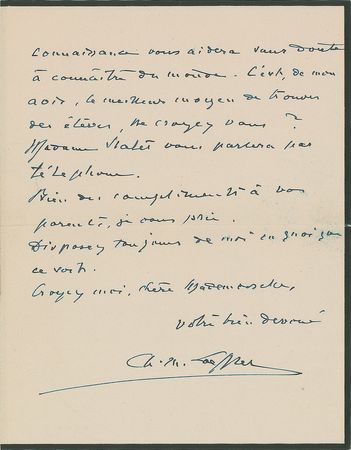 connaissance vous aidera sans doute
à connaître du monde. C'est, de mon
avis, le meilleur moyen de trouver
des élèves, ne croyez vous?
Madame vous parlera par
téléphone.
Bien des compliments à vos
parents, je vous prie.
Disposez toujours de moi en quoi que
ce soit.
Croyez moi, chère Mademoiselle,
votre bien dévoué
Ch. M. Loeffler